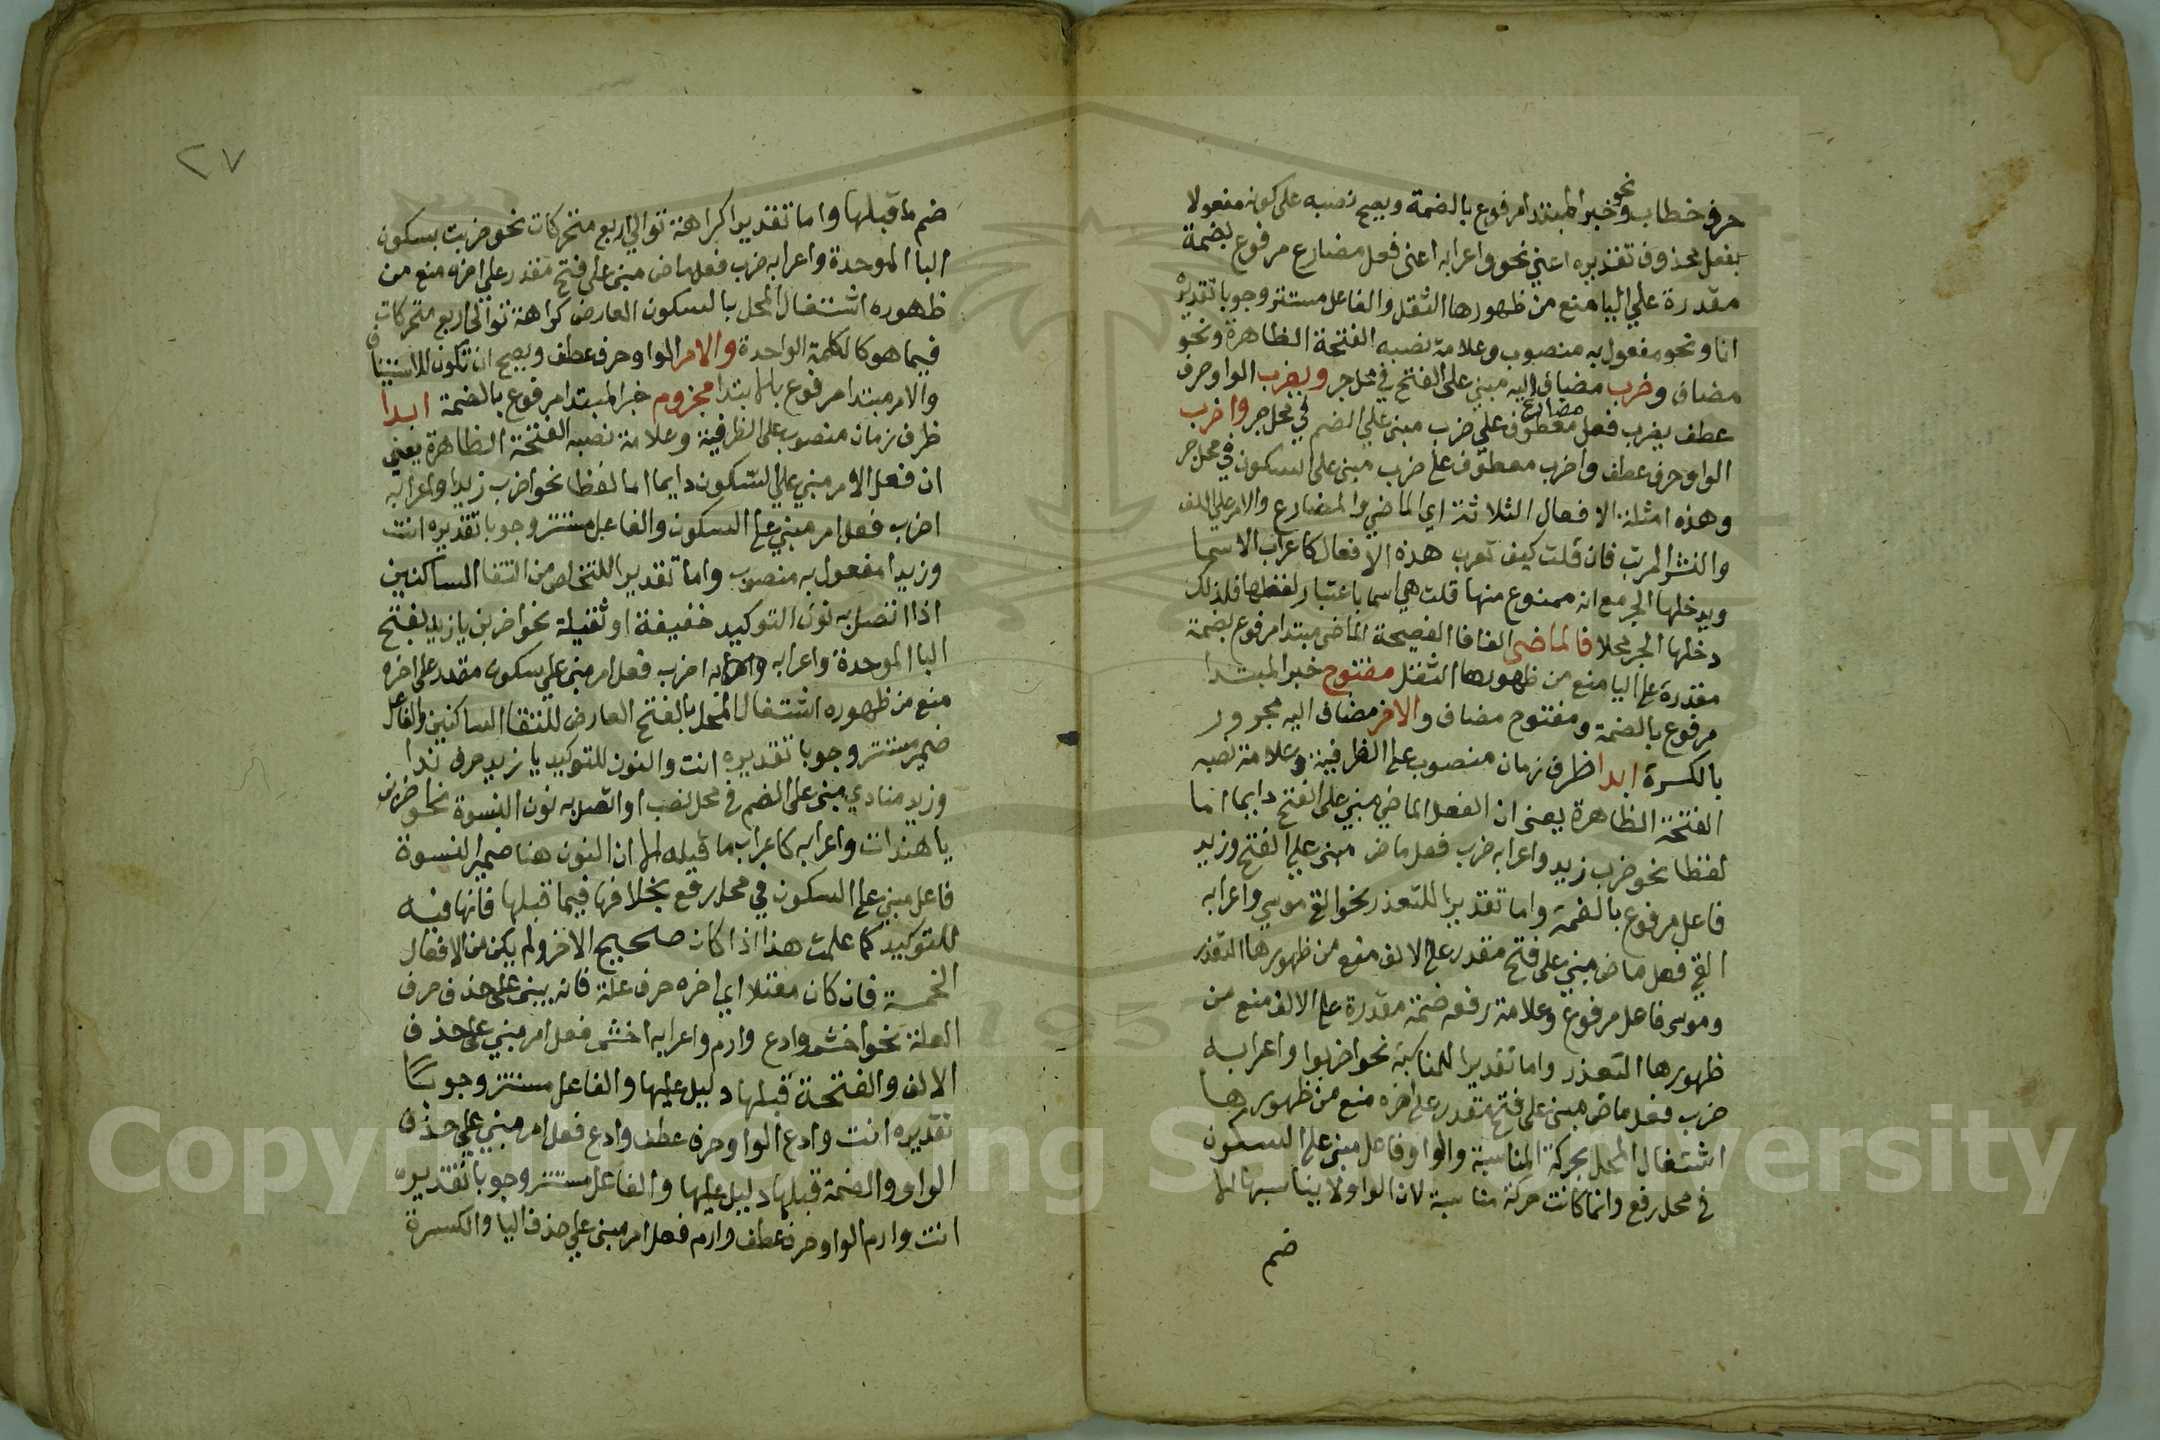 حرف خطاب ونحو خبر المبتدا مرفوع بالضمة ويصح نصبه على كونه مفعولا
بفعل محذوف تقديره اعني نحو واعرابه اعني فعل مضارع مرفوع بضمة
مقدرة على اليا منع من ظهورها الثقل والفاعل مستتر وجوبا تقديره
انا ونحو مفعول به منصوب وعلامة نصبه الفتحة الظاهرة ونحو
مضاف وضرب مضاف اليه مبني على الفتح في محل جر ويضرب الواو حرف
عطف يضرب فعل مضارع معطوف على ضرب مبني على الضم في محل جر واضرب
الواو حرف عطف واضرب معطوف على ضرب مبني على السكون في محل جر
وهذه امثلة الافعال الثلاثة اي الماضي والمضارع والامر على اللف
والنشر المرتب فان قلت كيف تعرب هذه الافعال كاعراب الاسما
ويدخلها الجر مع انه ممنوع منها قلت هي اسما باعتبار لفظها فلذلك
دخلها الجر محلا فالماضي الفا فا الفصيحة الماضي مبتدا مرفوع بضمة
مقدرة على اليا منع من ظهورها الثقل مفتوح خبر المبتدا
مرفوع بالضمة ومفتوح مضاف والاخر مضاف اليه مجرور
بالكسرة ابدا ظرف زمان منصوب على الظرفية وعلامة نصبه
الفتحة الظاهرة يعني ان الفعل الماضي مبني على الفتح دايما اما
لفظا نحو ضرب زيد واعرابه ضرب فعل ماض مبني على الفتح وزيد
فاعل مرفوع بالضمة واما تقديرا للتعذر نحو القى موسى واعرابه
القى فعل ماض مبني على فتح مقدر على الالف منع من ظهورها التعذر
وموسى فاعل مرفوع وعلامة رفعه ضمة مقدرة على الالف منع من
ظهورها التعذر واما تقديرا للمناسبة نحو اضربوا واعرابه
ضرب فعل ماض مبني على فتح مقدر على اخره منع من ظهورها
اشتغال المحل بحركة المناسبة والواو فاعل مبني على السكون
في محل رفع وانما كانت حركة مناسبة لان الواو لا يناسبها الا
ضم
٢٧
ضم ما قبلها واما تقديرا كراهة توالي اربع متحركات نحو ضربت بسكون
البا الموحدة واعرابه ضرب فعل ماض مبني على فتح مقدر على اخره منع من
ظهوره اشتغال المحل بالسكون العارض كراهة توالي اربع متحركات
فيما هو كالكلمة الواحدة والامر الواو حرف عطف ويصح ان تكون للاستيناف
والامر مبتدا مرفوع بالابتدا مجزوم خبر المبتدا مرفوع بالضمة ابدا
ظرف زمان منصوب على الظرفية وعلامة نصبه الفتحة الظاهرة يعني
ان فعل الامر مبني على السكون دايما اما لفظا نحو اضرب زيدا واعرابه
اضرب فعل امر مبني على السكون والفاعل مستتر وجوبا تقديره انت
وزيدا مفعول به منصوب واما تقديرا للتخلص من التقا الساكنين
اذا اتصل به نون التوكيد خفيفة او ثقيلة نحو اضربن يا زيد بفتح
البا الموحدة واعرابه اضرب فعل امر مبني على سكون مقدر على اخره
منع من ظهوره اشتغال المحل بالفتح العارض للتقا الساكنين والفاعل
ضمير مستتر وجوبا تقديره انت والنون للتوكيد يا زيد حرف ندا
وزيد منادي مبني على الضم في محل نصب او اتصل به نون النسوة نحو اضربن
يا هندات واعرابه كاعراب ما قبله الا ان النون هنا ضمير النسوة
فاعل مبني على السكون في محل رفع بخلافها فيما قبلها فانها فيه
للتوكيد كما علمت هذا اذا كان صحيح الاخر ولم يكن من الافعال
الخمسة فان كان معتلا اي اخره حرف علة فانه يبنى على حذف حرف
العلة نحو اخش وادع وارم واعرابه اخش فعل امر مبني على حذف
الالف والفتحة قبلها دليل عليها والفاعل مستتر وجوبا
تقديره انت وادع الواو حرف عطف وادع فعل امر مبني على حذف
الواو والضمة قبلها دليل عليها والفاعل مستتر وجوبا تقديره
انت وارم الواو حرف عطف وارم فعل امر مبني على حذف اليا والكسرة
Copyright © King Saud University
1957